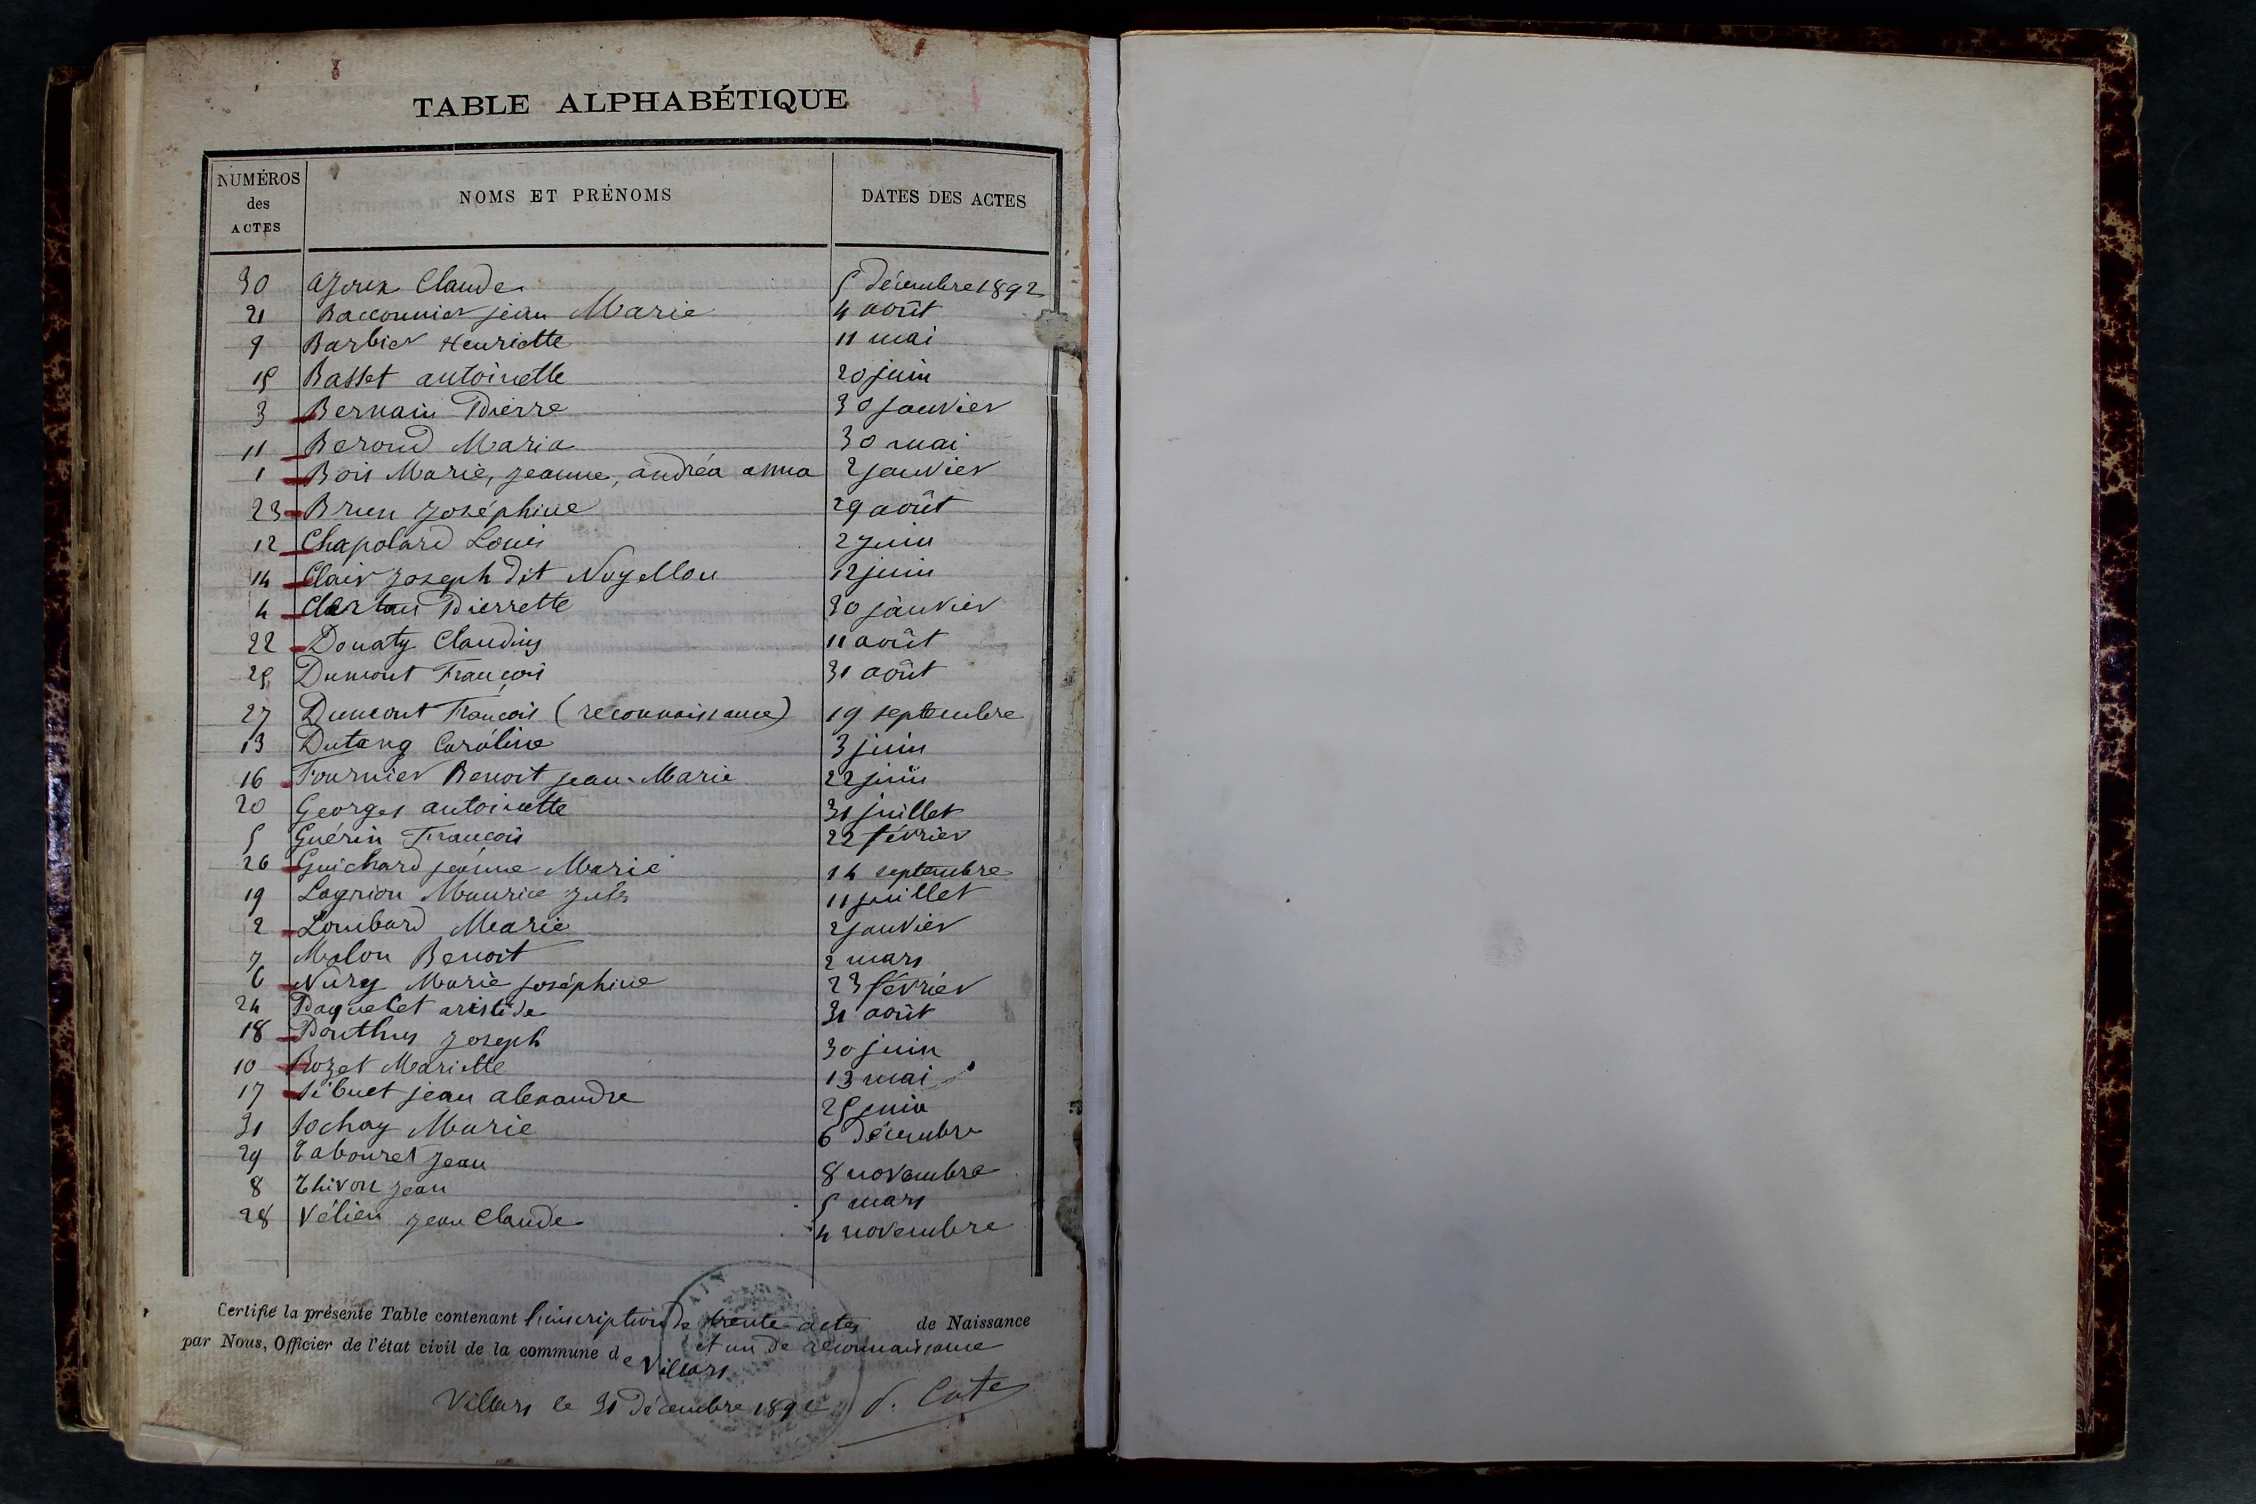 TABLE ALPHABÉTIQUE
NUMÉROS des ACTES NOMS ET PRÉNOMS DATES DES ACTES
30 Claude 5 décembre 1892
21 Bacconnier jean Marie 4 août
9 Barbier Henriette 11 mai
15 Basset antoinette 20 juin
3 Bernain Pierre 30 janvier
11 Beroud Maria 30 mai
1 Bois Marie, jeanne, andréa anna 2 janvier
23 Brun joséphine 29 août
12 Chapolard Louis 2 juin
14 Clair joseph dit Noyellou 12 juin
4 Pierrette 30 janvier
22 Donaty Claudius 11 août
25 Dumont François 31 août
27 Dumont François (reconnaissance) 19 septembre
13 Dutang Caroline 3 juin
16 Fournier Benoit jean-Marie 22 juin
20 Georges antoinette 31 juillet
5 Guérin François 22 février
26 Guichard jeanne Marie 14 septembre
19 Maurice 11 juillet
2 Lombard Marie 2 janvier
7 Molon Benoit 2 mars
6 Nury Marie joséphine 23 février
24 Paquelet aristide 31 août
18 Ponthus joseph 30 juin
10 Rozet Mariette 13 mai
17 Sibuet jean alexandre 25 juin
31 Sochay Marie 6 décembre
29 Tabouret jean 8 novembre
8 Thivon jean 5 mars
28 Vélien jean Claude 4 novembre
Certifié la présente Table contenant l'inscription de trente actes de Naissance
et un de reconnaissance
par Nous, Officier de l'état civil de la commune de Villars
Villars le 31 décembre 1892
AIN